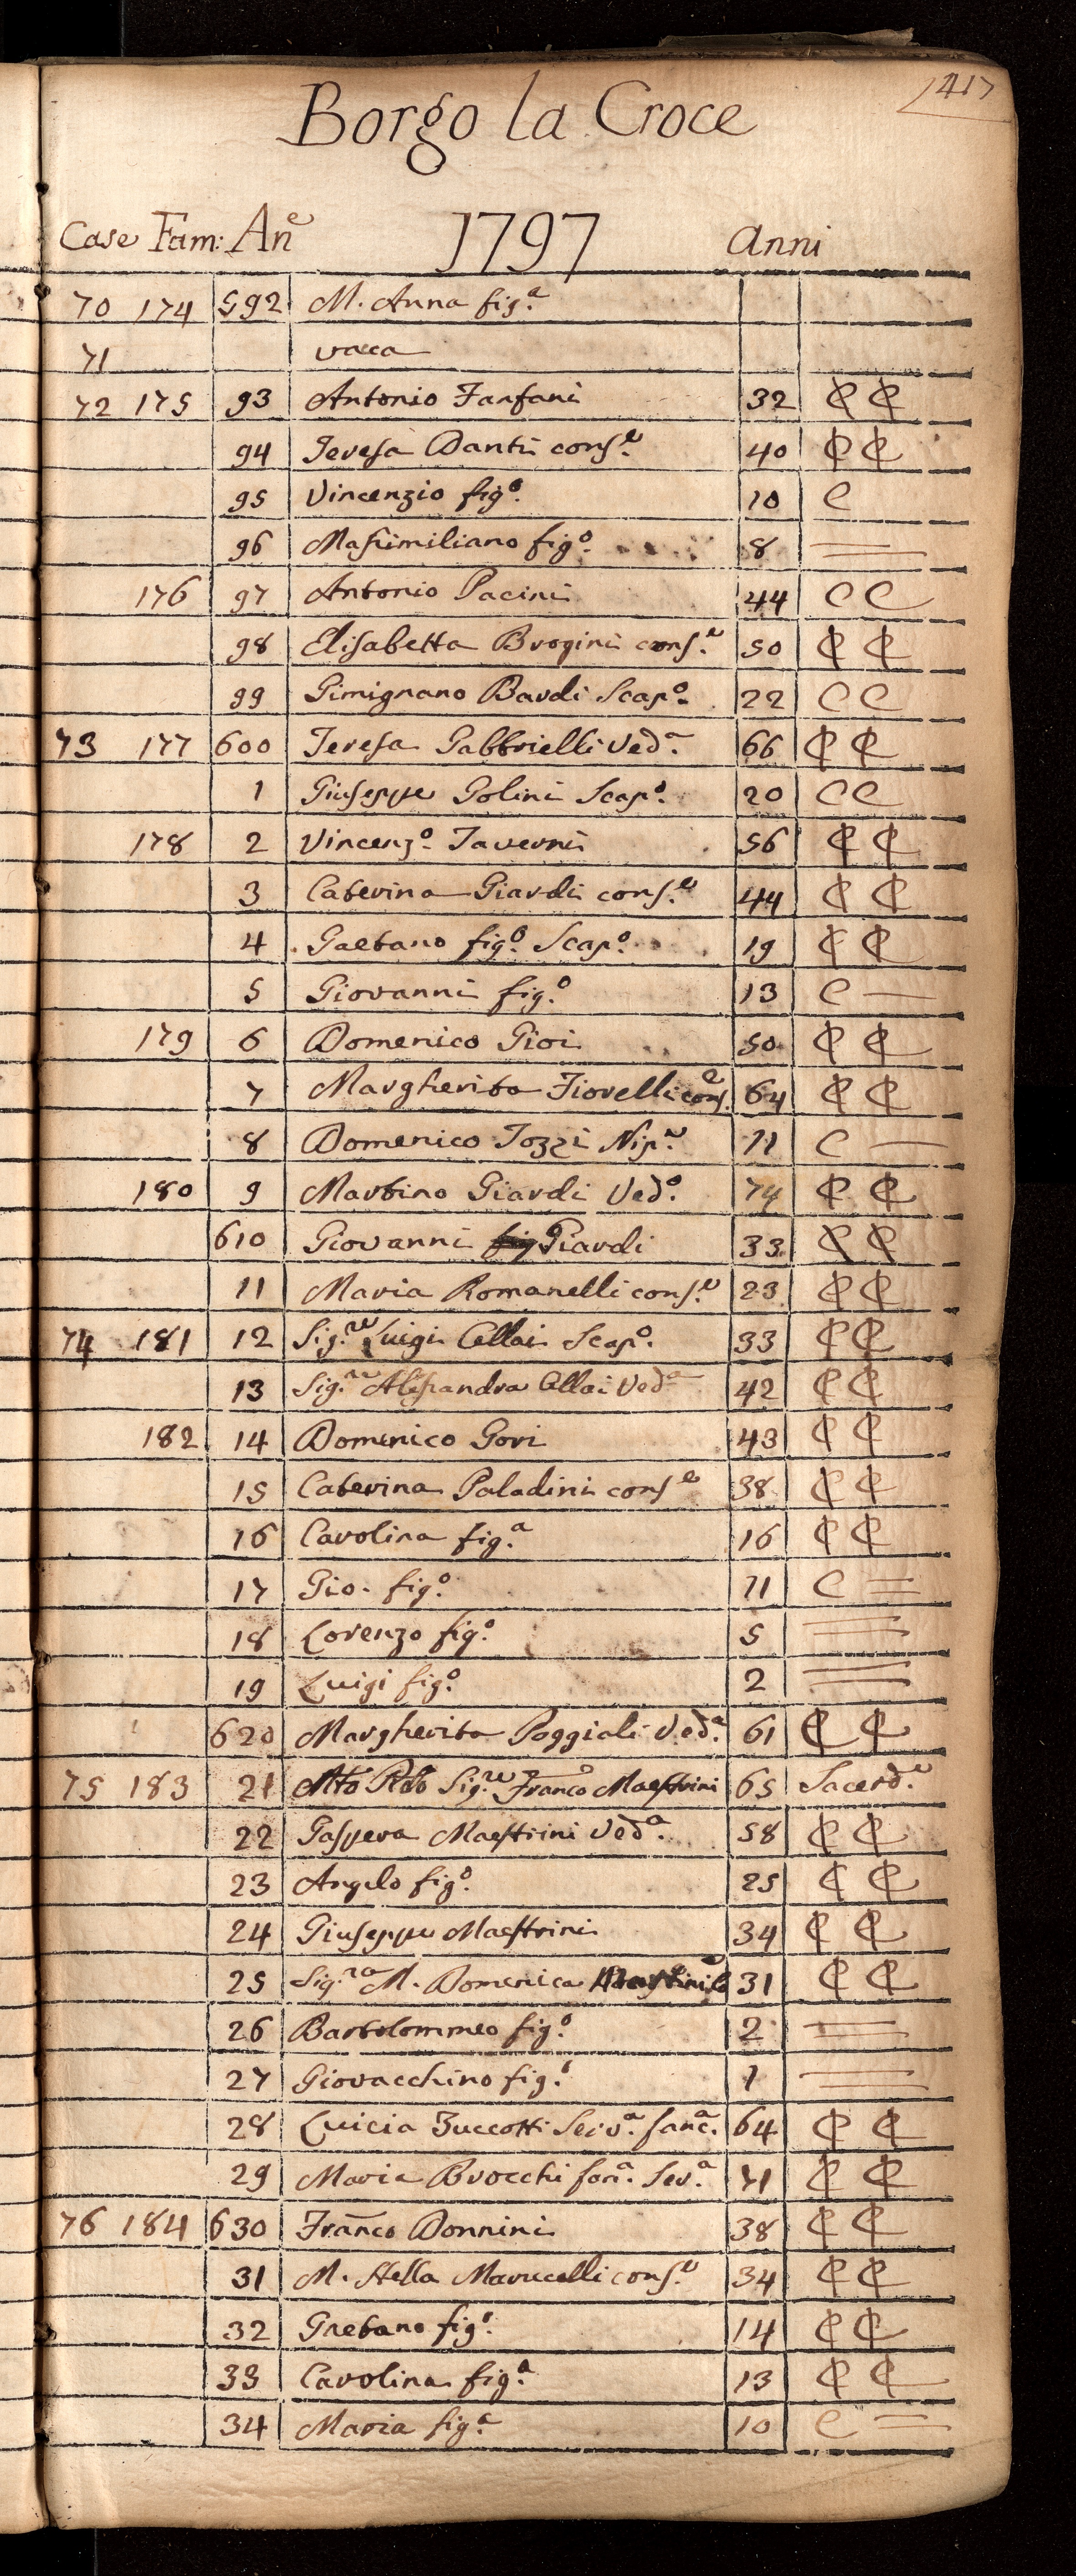 417
Borgo la Croce
Case Fam: An.e 1797 Anni
70 174 592 M. Anna fig.a
71 vacca
72 175 93 Antonio Fanfani 32 C C
94 Teresa Danti cons.e 40 C C
95 Vincenzio fig.o 10 C
96 Massimiliano fig.o 8
176 97 Antonio Pacini 44 C C
98 Elisabetta Brogini cons.e 50 C C
99 Gimignano Bardi Scap.o 22 C C
73 177 600 Teresa Gabbrielli Ved.a 66 C C
1 Giuseppe Golini Scap.o 20 C C
178 2 Vincenz.o Taverni 56 C C
3 Caterina Giardi cons.e 44 C C
4 Gaetano fig.o Scap.o 19 C C
5 Giovanni fig.o 13 C —
179 6 Domenico Gioi 50 C C
7 Margherita Fiorelli cons.e 64 C C
8 Domenico Tozzi Nip.e 11 C —
180 9 Martino Giardi Ved.o 74 C C
610 Giovanni Giardi 33 C C
11 Maria Romanelli cons.e 23 C C
74 181 12 Sig.re Luigi Cellai Scap.o 33 C C
13 Sig.ra Alessandra Cellai Ved.a 42 C C
182 14 Domenico Gori 43 C C
15 Caterina Paladini cons.e 38 C C
16 Carolina fig.a 16 C C
17 Gio. fig.o 11 C
18 Lorenzo fig.o 5
19 Luigi fig.o 2
620 Margherita Poggiali Ved.a 61 C C
75 183 21 Mto Rdo Sig.re Franco Maestrini 65 Sacerd.e
22 Gaspera Maestrini Ved.a 58 C C
23 Angelo fig.o 25 C C
24 Giuseppe Maestrini 34 C C
25 Sig.ra M. Domenica 31 C C
26 Bartolommeo fig.o 2
27 Giovacchino fig.o 1
28 Luicia Zuccotti Serv.a fanc.a 64 C C
29 Maria Brocchi fan.a Ser.a 41 C C
76 184 630 Franco Donnini 38 C C
31 M. Stella Marucelli cons.e 34 C C
32 Gaetano fig.o 14 C C
33 Carolina fig.a 13 C C
34 Maria fig.a 10 C